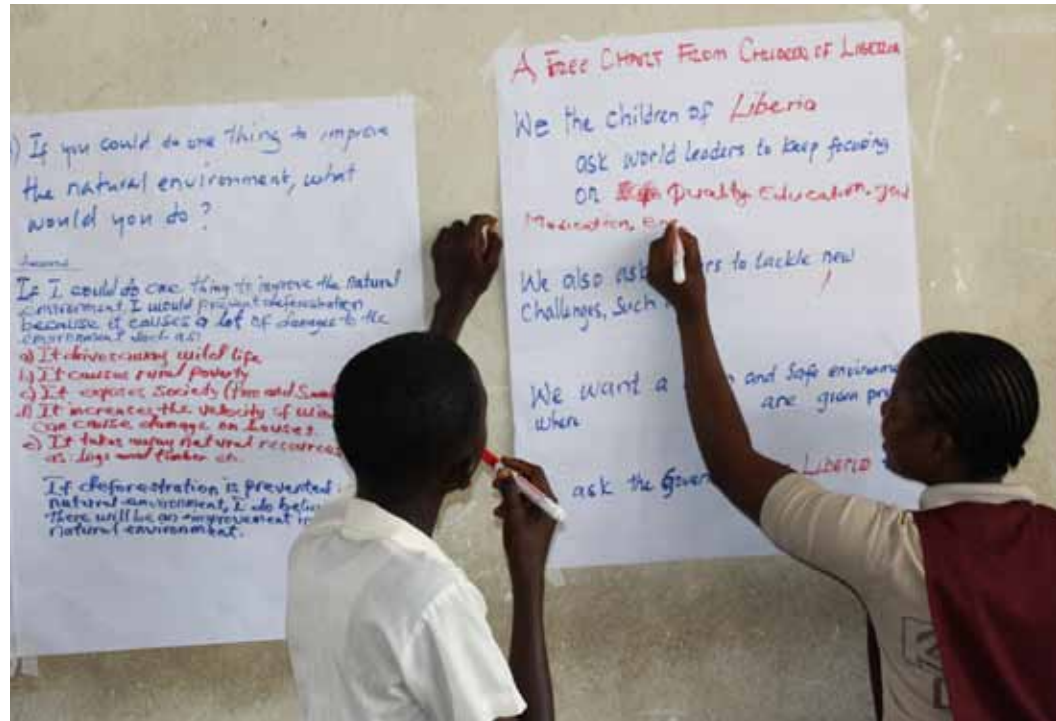 If you could do one thing to improve
the natural environment, what
would you do?
Answer
If I could do one thing to improve the natural
environment, I would prevent deforestation
because it causes a lot of damages to the
environment such as:
a) It drives away wild life
b) It causes rural poverty
c) It exposes society
d) It increases the velocity of
can cause damage on houses.
e) It takes away natural resources
as logs and timber etc.
If deforestration is prevented
natural environment, I do
there will be an improvement in
natural environment.
A FREE CHART FROM CHILDREN OF LIBERIA
We the children of Liberia
ask world leaders to keep focusing
on Quality Education,
Medication,
We also ask to tackle new
Challenges, such
We want a and safe
where are given
ask the LIBERIA